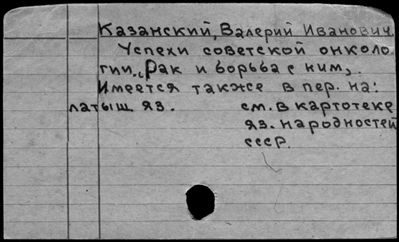 Казанский, Валерий Иванович.
Успехи советской онколо
гии. „Рак и борьба с ним„.
Имеется также в пер. на:
латыш. яз. см. в картотеке
яз. народностей
СССР.